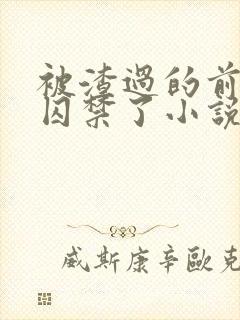 被渣過的前
囚禁了小說
威斯康辛歐克